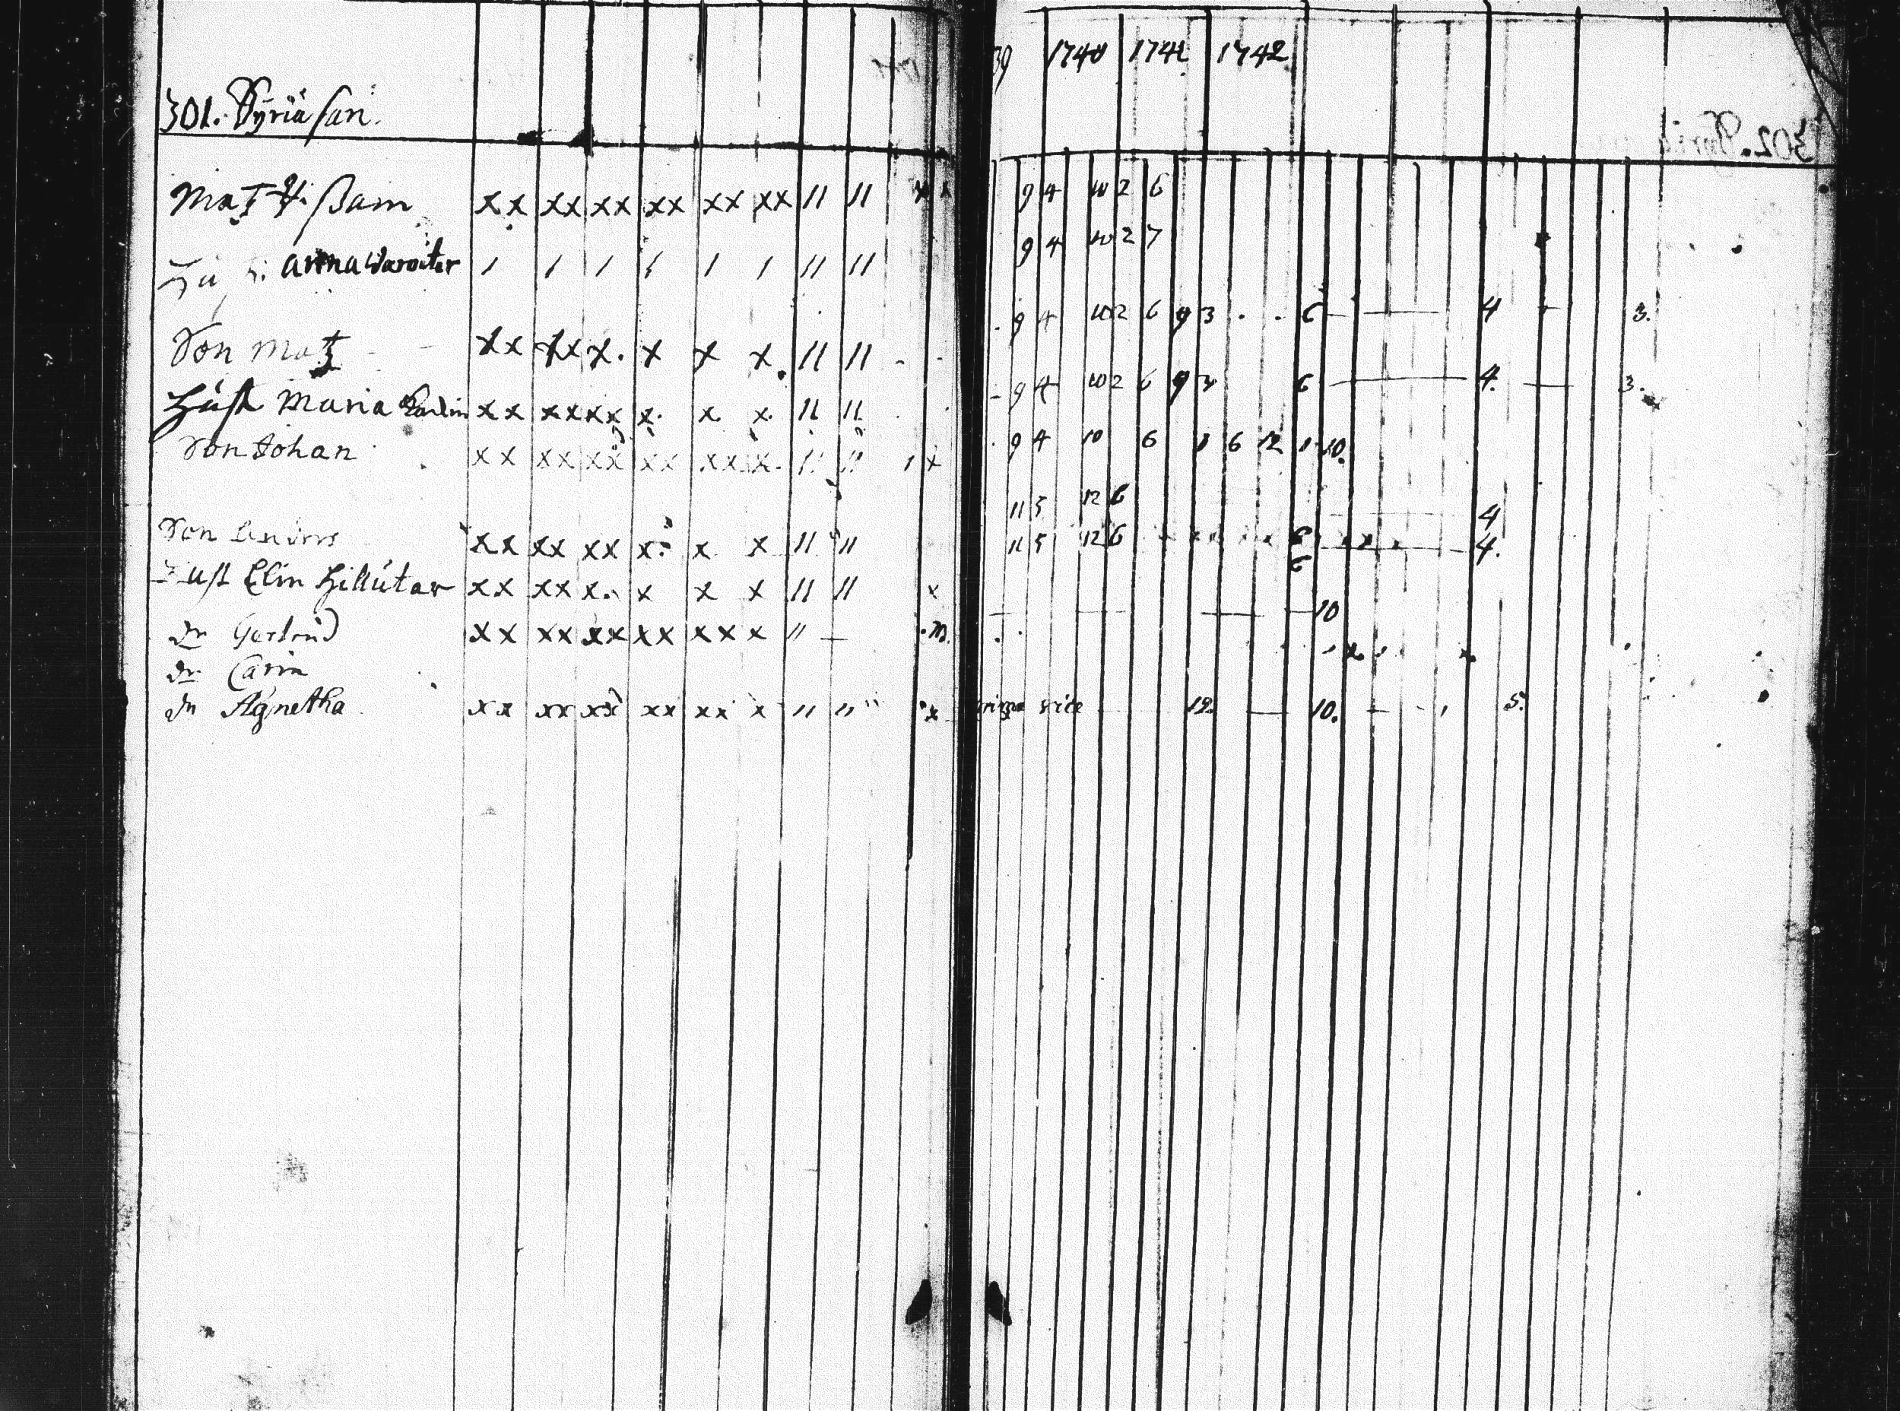 301. Syriä sari.
39 1740 1741 1742
Matz H: Pam xx xx xx xx xx xx 11 11 9 4 10 2 6
anna Waroitar 1 1 1 1 1 1 11 11 9 4 10 2 7
Son Matz xx xx x. x x x. 11 11 9 4 10 2 6 9 3 6 4 3.
Hust Maria xx xx xx x. x x. 11 11 9 4 10 2 6 9 6 4. 3.
Son Johan xx xx xx xx xx x. 11 11 1 x 9 4 10 6 6 12 10.
Son Anders xx xx xx x. x x 11 11 11 5 12 6 4
Hust Elin Hillutar xx xx x. x x x 11 11 x 11 5 12 6 6 4.
dr Gertrud xx xx xx xx xx x x 11 — 10
dr Carin
dr Agnetha xx xx xx xx xx x 11 11 x 12. 10. 5.